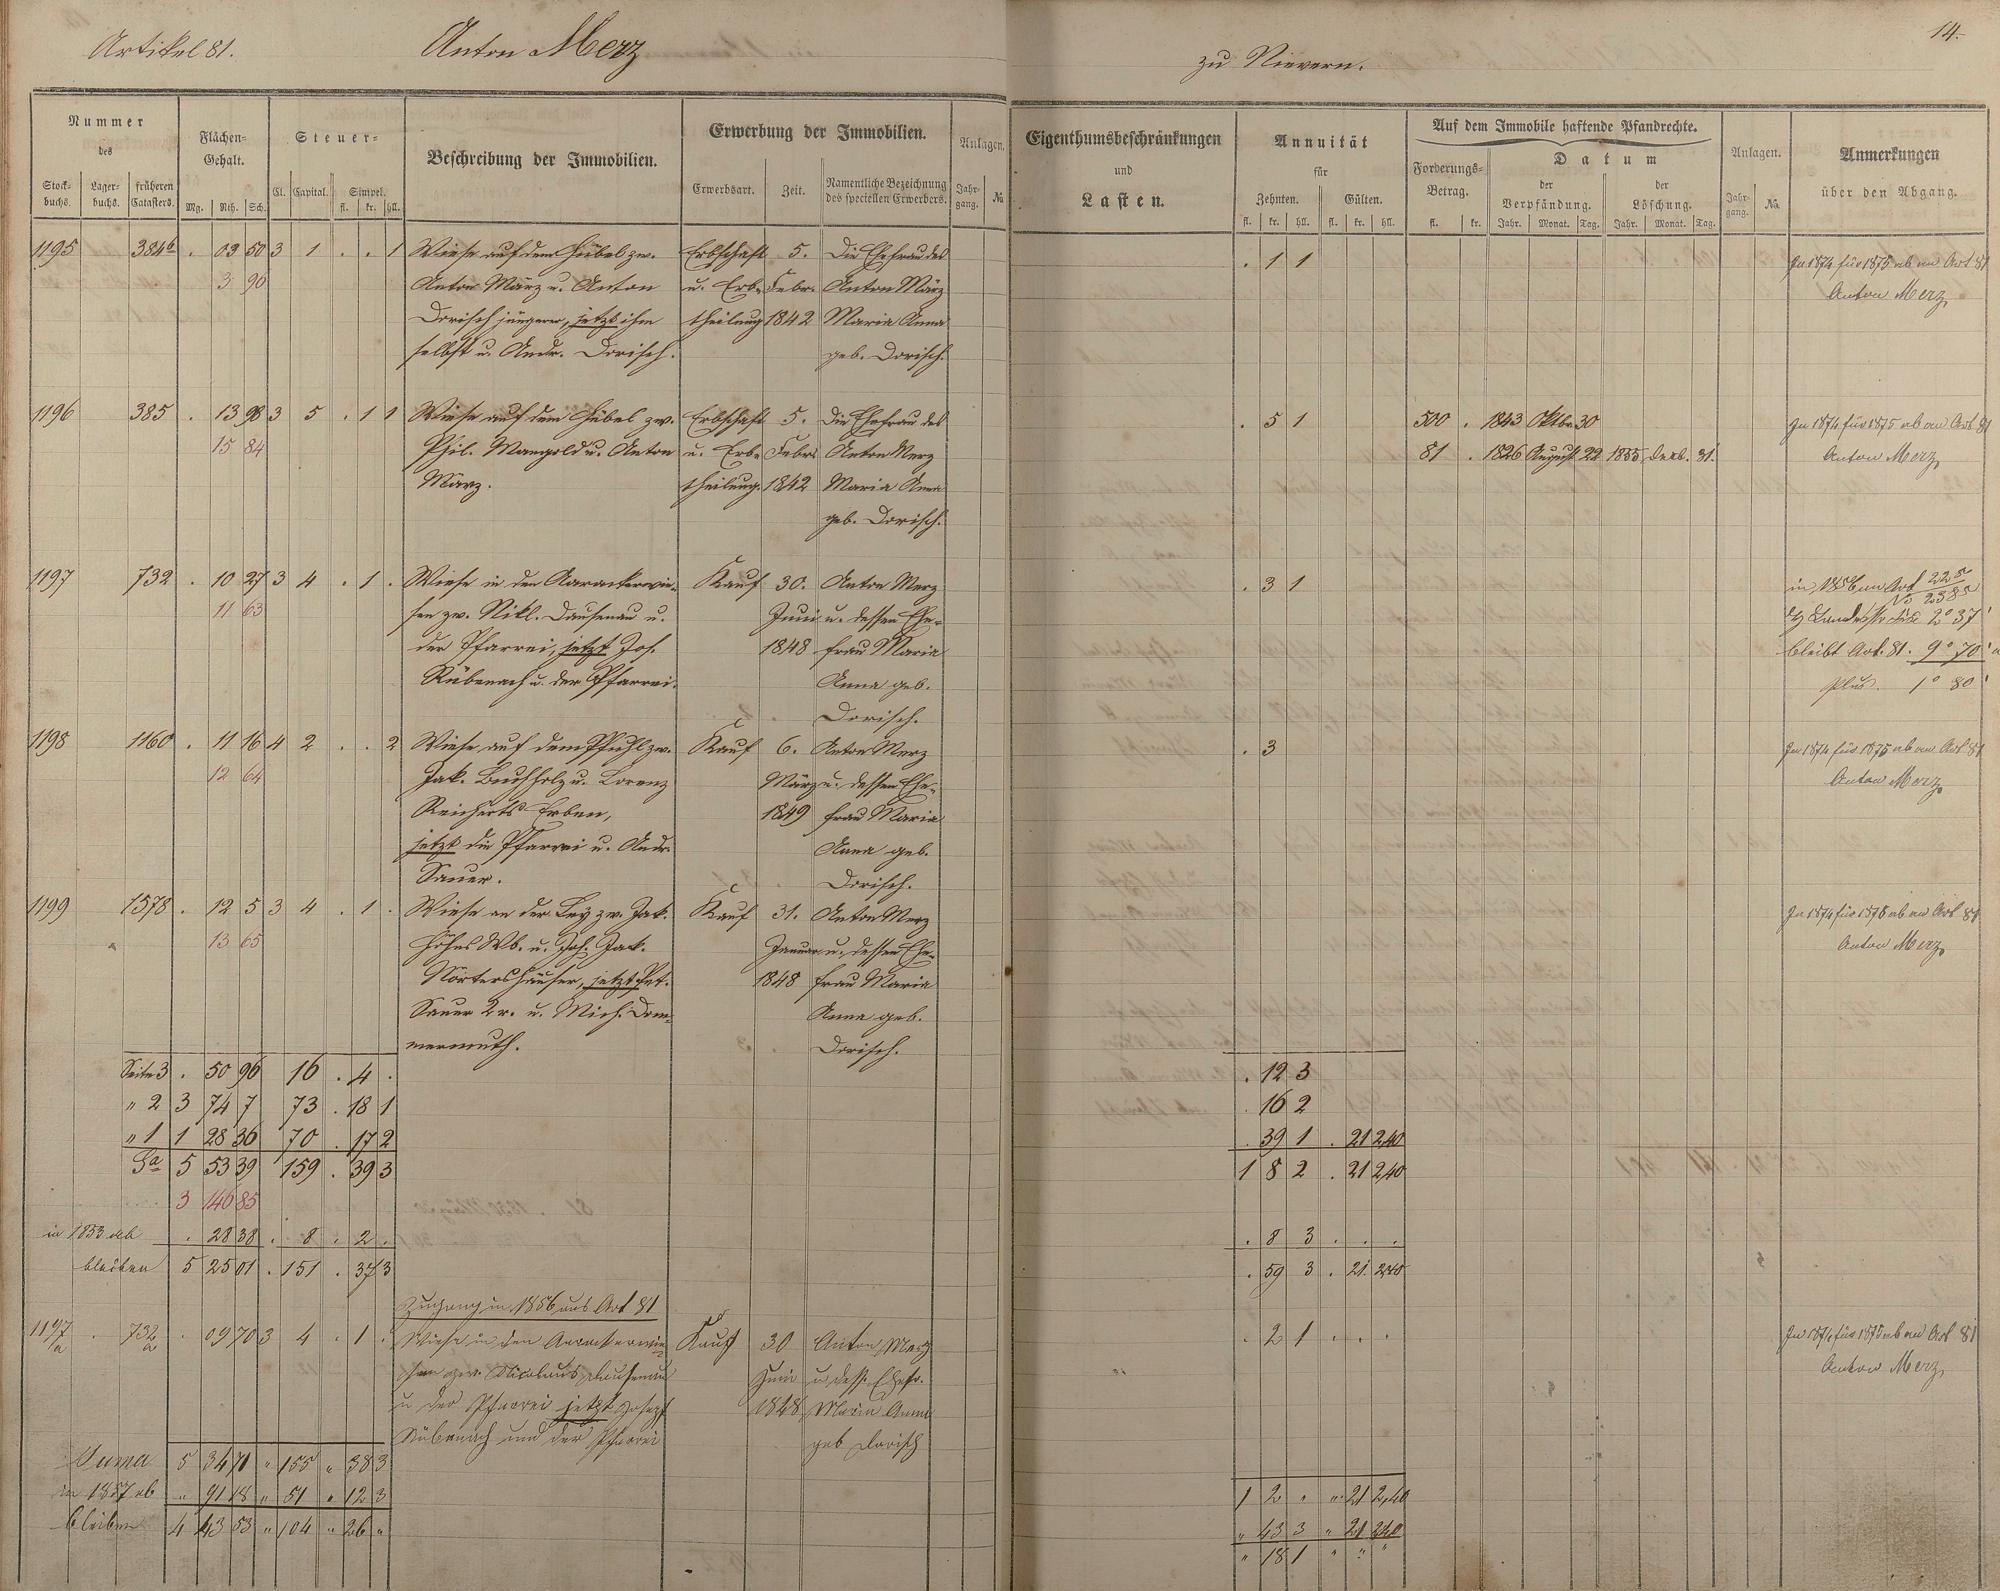 Artikel 81. Anton Merz zu Nievern. 14.
Nummer des Flächen-Gehalt. Steuer- Beschreibung der Immobilien. Erwerbung der Immobilien. Anlagen.
Stock-buchs. Lager-buchs. früheren Catasters. Mg. Rth. Sch. Cl. Capital. Simpel. fl. kr. hll. Erwerbsart. Zeit. Namentliche Bezeichnung des speciellen Erwerbers. Jahr-gang. No.
Eigenthumsbeschränkungen und Lasten. Annuität für Zehnten. Gülten. fl. kr. hll. fl. kr. hll.
Auf dem Immobile haftende Pfandrechte. Forderungs-Betrag. fl. kr. Datum der Verpfändung. Jahr. Monat. Tag. der Löschung. Jahr. Monat. Tag. Anlagen. Jahr-gang. No. Anmerkungen über den Abgang.
1195 384b . 03 50 3 1 . . 1 Wiese auf dem Hübel zw. Erbschaft 5. Die Ehefrau des . 1 1 In 1874 für 1875 ab an Art 81
3 96 Anton März u. Anton u. Erb- Febr. Anton März Anton Merz
Dorisch jüngerer, jetzt ihm theilung 1842 Maria Anna
selbst u. Andr. Dorisch. geb. Dorisch.
1196 385 . 13 98 3 5 . 1 1 Wiese auf dem Hübel zw. Erbschaft 5. Die Ehefrau des . 5 1 500 . 1843 Oktbr. 30 In 1874 für 1875 ab an Art 81
15 84 Phil. Mangold u. Anton u. Erb- Febr. Anton Merz 81 . 1826 August 22 1855 Decb. 31. Anton Merz
März. theilung. 1842 Maria Anna
geb. Dorisch.
1197 732 . 10 27 3 4 . 1 . Wiese in den Aarackerwie- Kauf 30. Anton Merz . 3 1 in 1856 an Art 225
11 63 sen zw. Nikl. Dausenau u. Juni u. dessen Ehe- No 2385
der Pfarrei, jetzt Jos. 1848 frau Maria 2° 37'
Rübenach u. der Pfarrei. Anna geb. bleibt Art. 81. 9° 70'
Dorisch. plus. 1° 80'
1198 1160 . 11 16 4 2 . . 2 Wiese auf dem Pfuhl zw. Kauf 6. Anton Merz . 3 In 1874 für 1875 ab an Art 81
12 64 Jak. Buchholz u. Lorenz März u. dessen Ehe- Anton Merz
Reicherts Erben, 1849 frau Maria
jetzt die Pfarrei u. Andr. Anna geb.
Sauer. Dorisch.
1199 1578 . 12 5 3 4 . 1 . Wiese an der Ley zw. Jak. Kauf 31. Anton Merz In 1874 für 1875 ab an Art 81
13 65 Höhns Wb. u. Joh. Jak. Januar u. dessen Ehe- Anton Merz
Nörtershäuser, jetzt Pet. 1848 frau Maria
Sauer 2r. u. Mich. Dom- Anna geb.
mermuth. Dorisch.
Seite 3 . 50 96 16 . 4 . . 12 3
" 2 3 74 7 73 . 18 1 . 16 2
" 1 1 28 36 70 . 17 2 . 39 1 . 21 2,40
Sa 5 53 39 159 . 39 3 1 8 2 . 21 2,40
3 146 85
in 1853 ab . 28 38 . 8 . 2 . . 8 3 . . .
bleiben 5 25 01 . 151 . 37 3 . 59 3 . 21. 2,40
Zugang in 1856 aus Art 81
1197a . 732a . 09 70 3 4 . 1 . Wiese in den Aarackerwie- Kauf 30 Anton Merz . 2 1 . . . In 1874 für 1875 ab an Art 81
sen zw. Nicolaus Dausenau Juni u dess. Ehefr. Anton Merz
u der Pfarrei jetzt Joseph 1848 Maria Anna
Rübenach und der Pfarrei geb Dorisch
Suma 5 34 71 " 155 " 38 3
in 1857 ab " 91 18 " 51 " 12 3 1 2 " " 21 2,40
bleiben 4 43 53 " 104 " 26 " " 43 3 " 21 2,40
" 18 1 " " "